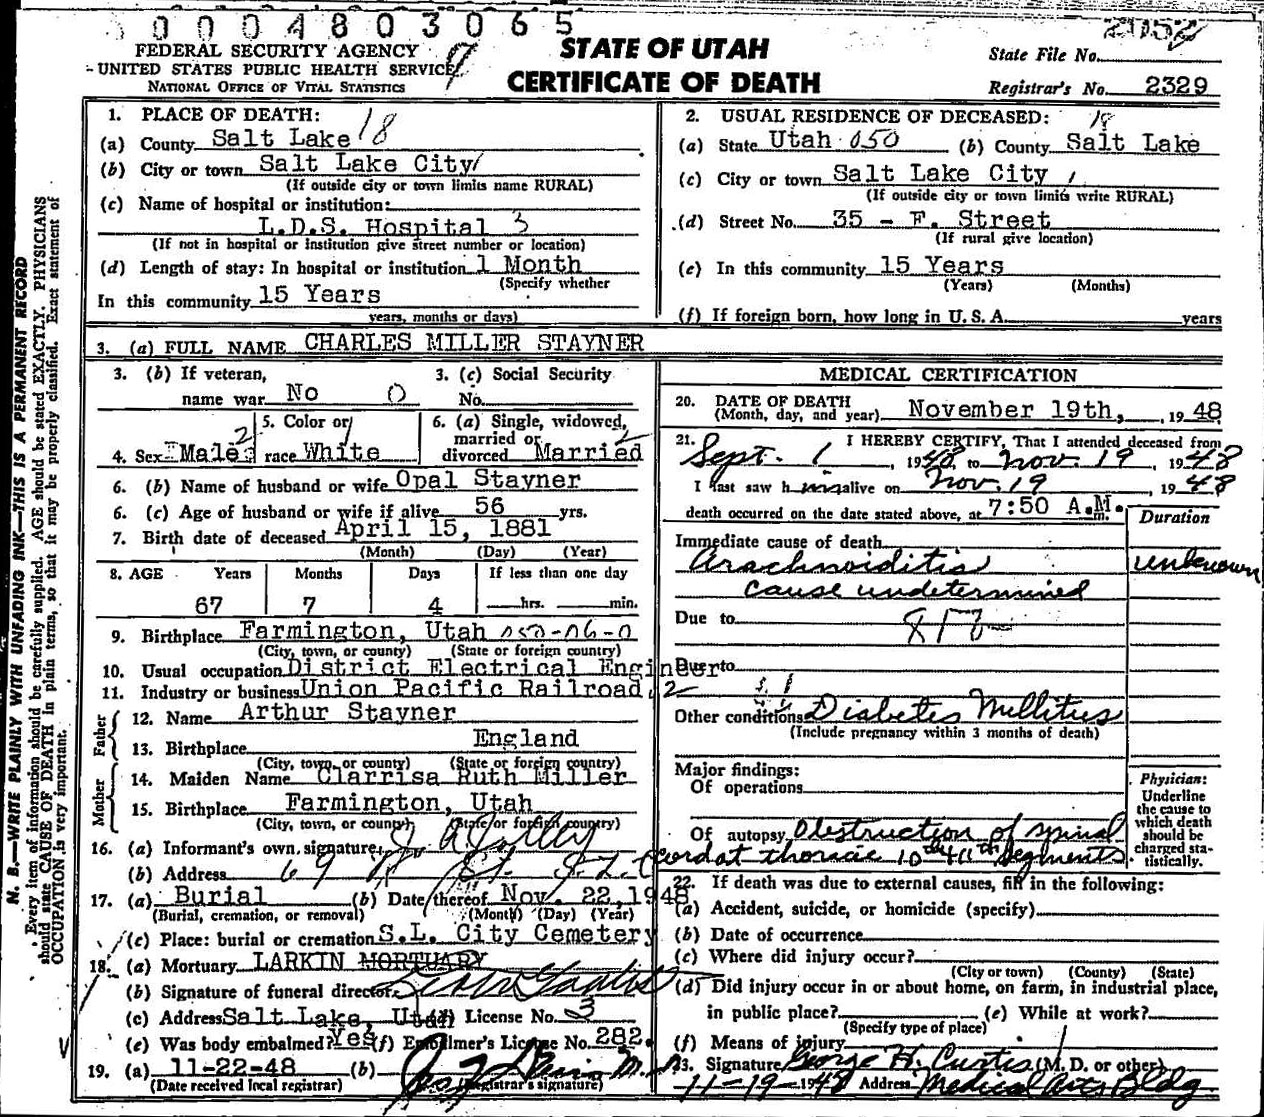 0004803065
FEDERAL SECURITY AGENCY
UNITED STATES PUBLIC HEALTH SERVICE
NATIONAL OFFICE OF VITAL STATISTICS
STATE OF UTAH
CERTIFICATE OF DEATH
State File No.
Registrar's No. 2329
N. B.—WRITE PLAINLY WITH UNFADING INK—THIS IS A PERMANENT RECORD
Every item of information should be carefully supplied. AGE should be stated EXACTLY. PHYSICIANS
should state CAUSE OF DEATH in plain terms, so that it may be properly classified. Exact statement of
OCCUPATION is very important.
1. PLACE OF DEATH:
(a) County Salt Lake 18
(b) City or town Salt Lake City
(If outside city or town limits name RURAL)
(c) Name of hospital or institution:
L.D.S. Hospital 3
(If not in hospital or institution give street number or location)
(d) Length of stay: In hospital or institution 1 Month
(Specify whether
In this community 15 Years
years, months or days)
2. USUAL RESIDENCE OF DECEASED: 18
(a) State Utah 050 (b) County Salt Lake
(c) City or town Salt Lake City
(If outside city or town limits write RURAL)
(d) Street No. 35 - F. Street
(If rural give location)
(e) In this community 15 Years
(Years) (Months)
(f) If foreign born, how long in U. S. A. years
3. (a) FULL NAME CHARLES MILLER STAYNER
3. (b) If veteran,
name war No 0
3. (c) Social Security
No.
4. Sex Male 2
5. Color or
race White
6. (a) Single, widowed,
married or 2
divorced Married
6. (b) Name of husband or wife Opal Stayner
6. (c) Age of husband or wife if alive 56 yrs.
7. Birth date of deceased April 15, 1881
(Month) (Day) (Year)
8. AGE Years Months Days If less than one day
67 7 4 hrs. min.
9. Birthplace Farmington, Utah 050-06-0
(City, town, or county) (State or foreign country)
10. Usual occupation District Electrical Engineer
11. Industry or business Union Pacific Railroad. 2
Father
12. Name Arthur Stayner
13. Birthplace England
(City, town, or county) (State or foreign country)
Mother
14. Maiden Name Clarrisa Ruth Miller
15. Birthplace Farmington, Utah
(City, town, or county) (State or foreign country)
16. (a) Informant's own signature
(b) Address 69 St. S.L.C
17. (a) Burial (b) Date thereof Nov. 22, 1948
(Burial, cremation, or removal) (Month) (Day) (Year)
(c) Place: burial or cremation S.L. City Cemetery
18. (a) Mortuary LARKIN MORTUARY
(b) Signature of funeral director
(c) Address Salt Lake, Utah (d) License No. 3
(e) Was body embalmed? Yes (f) Embalmer's License No. 282.
19. (a) 11-22-48 (b)
(Date received local registrar) (Registrar's signature)
MEDICAL CERTIFICATION
20. DATE OF DEATH
(Month, day, and year) November 19th, , 1948
21. I HEREBY CERTIFY, That I attended deceased from
Sept. 1, 1948, to Nov. 19, 1948
I last saw him alive on Nov. 19, 1948
death occurred on the date stated above, at 7:50 A.M. m.
Duration
Immediate cause of death
Arachnoiditis unknown
cause undetermined
Due to
Due to
Other conditions Diabetes Millitus
(Include pregnancy within 3 months of death)
Major findings:
Of operations
Of autopsy Obstruction of spinal
cord at thoracic 10th 11th segments.
Physician:
Underline
the cause to
which death
should be
charged sta-
tistically.
22. If death was due to external causes, fill in the following:
(a) Accident, suicide, or homicide (specify)
(b) Date of occurrence
(c) Where did injury occur?
(City or town) (County) (State)
(d) Did injury occur in or about home, on farm, in industrial place,
in public place? (e) While at work?
(Specify type of place)
(f) Means of injury
23. Signature George H. Curtis (M. D. or other)
11-19-1948 Address Medical Arts Bldg